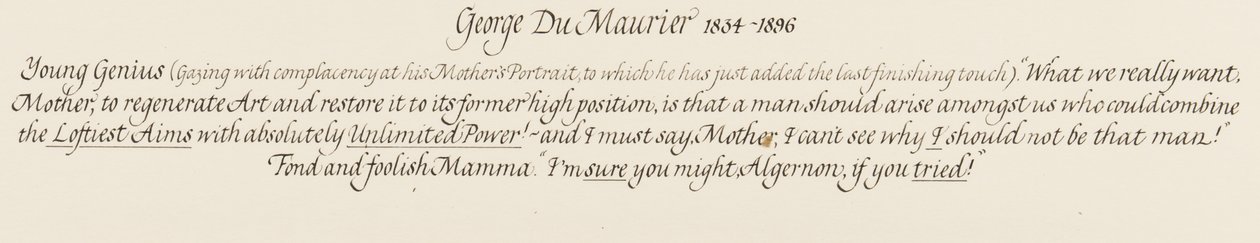 George Du Maurier 1834 - 1896
Young Genius (Gazing with complacency at his Mother's Portrait, to which he has just added the last finishing touch). "What we really want,
Mother, to regenerate Art and restore it to its former high position, is that a man should arise amongst us who could combine
the Loftiest Aims with absolutely Unlimited Power! ~ and I must say, Mother, I can't see why I should not be that man!"
Fond and foolish Mamma. "I'm sure you might, Algernon, if you tried!"